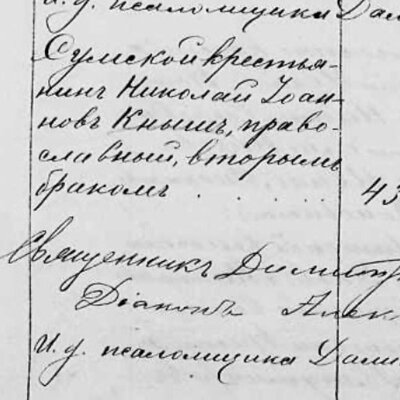 и. д. псаломщика Дам
Сумской крестья-
нинъ Николай Іоан-
новъ Кнышъ, право-
славный, вторымъ
бракомъ . . . . . 43
Священникъ Димитр
Діаконъ Алек
И. д. псаломщика Дами